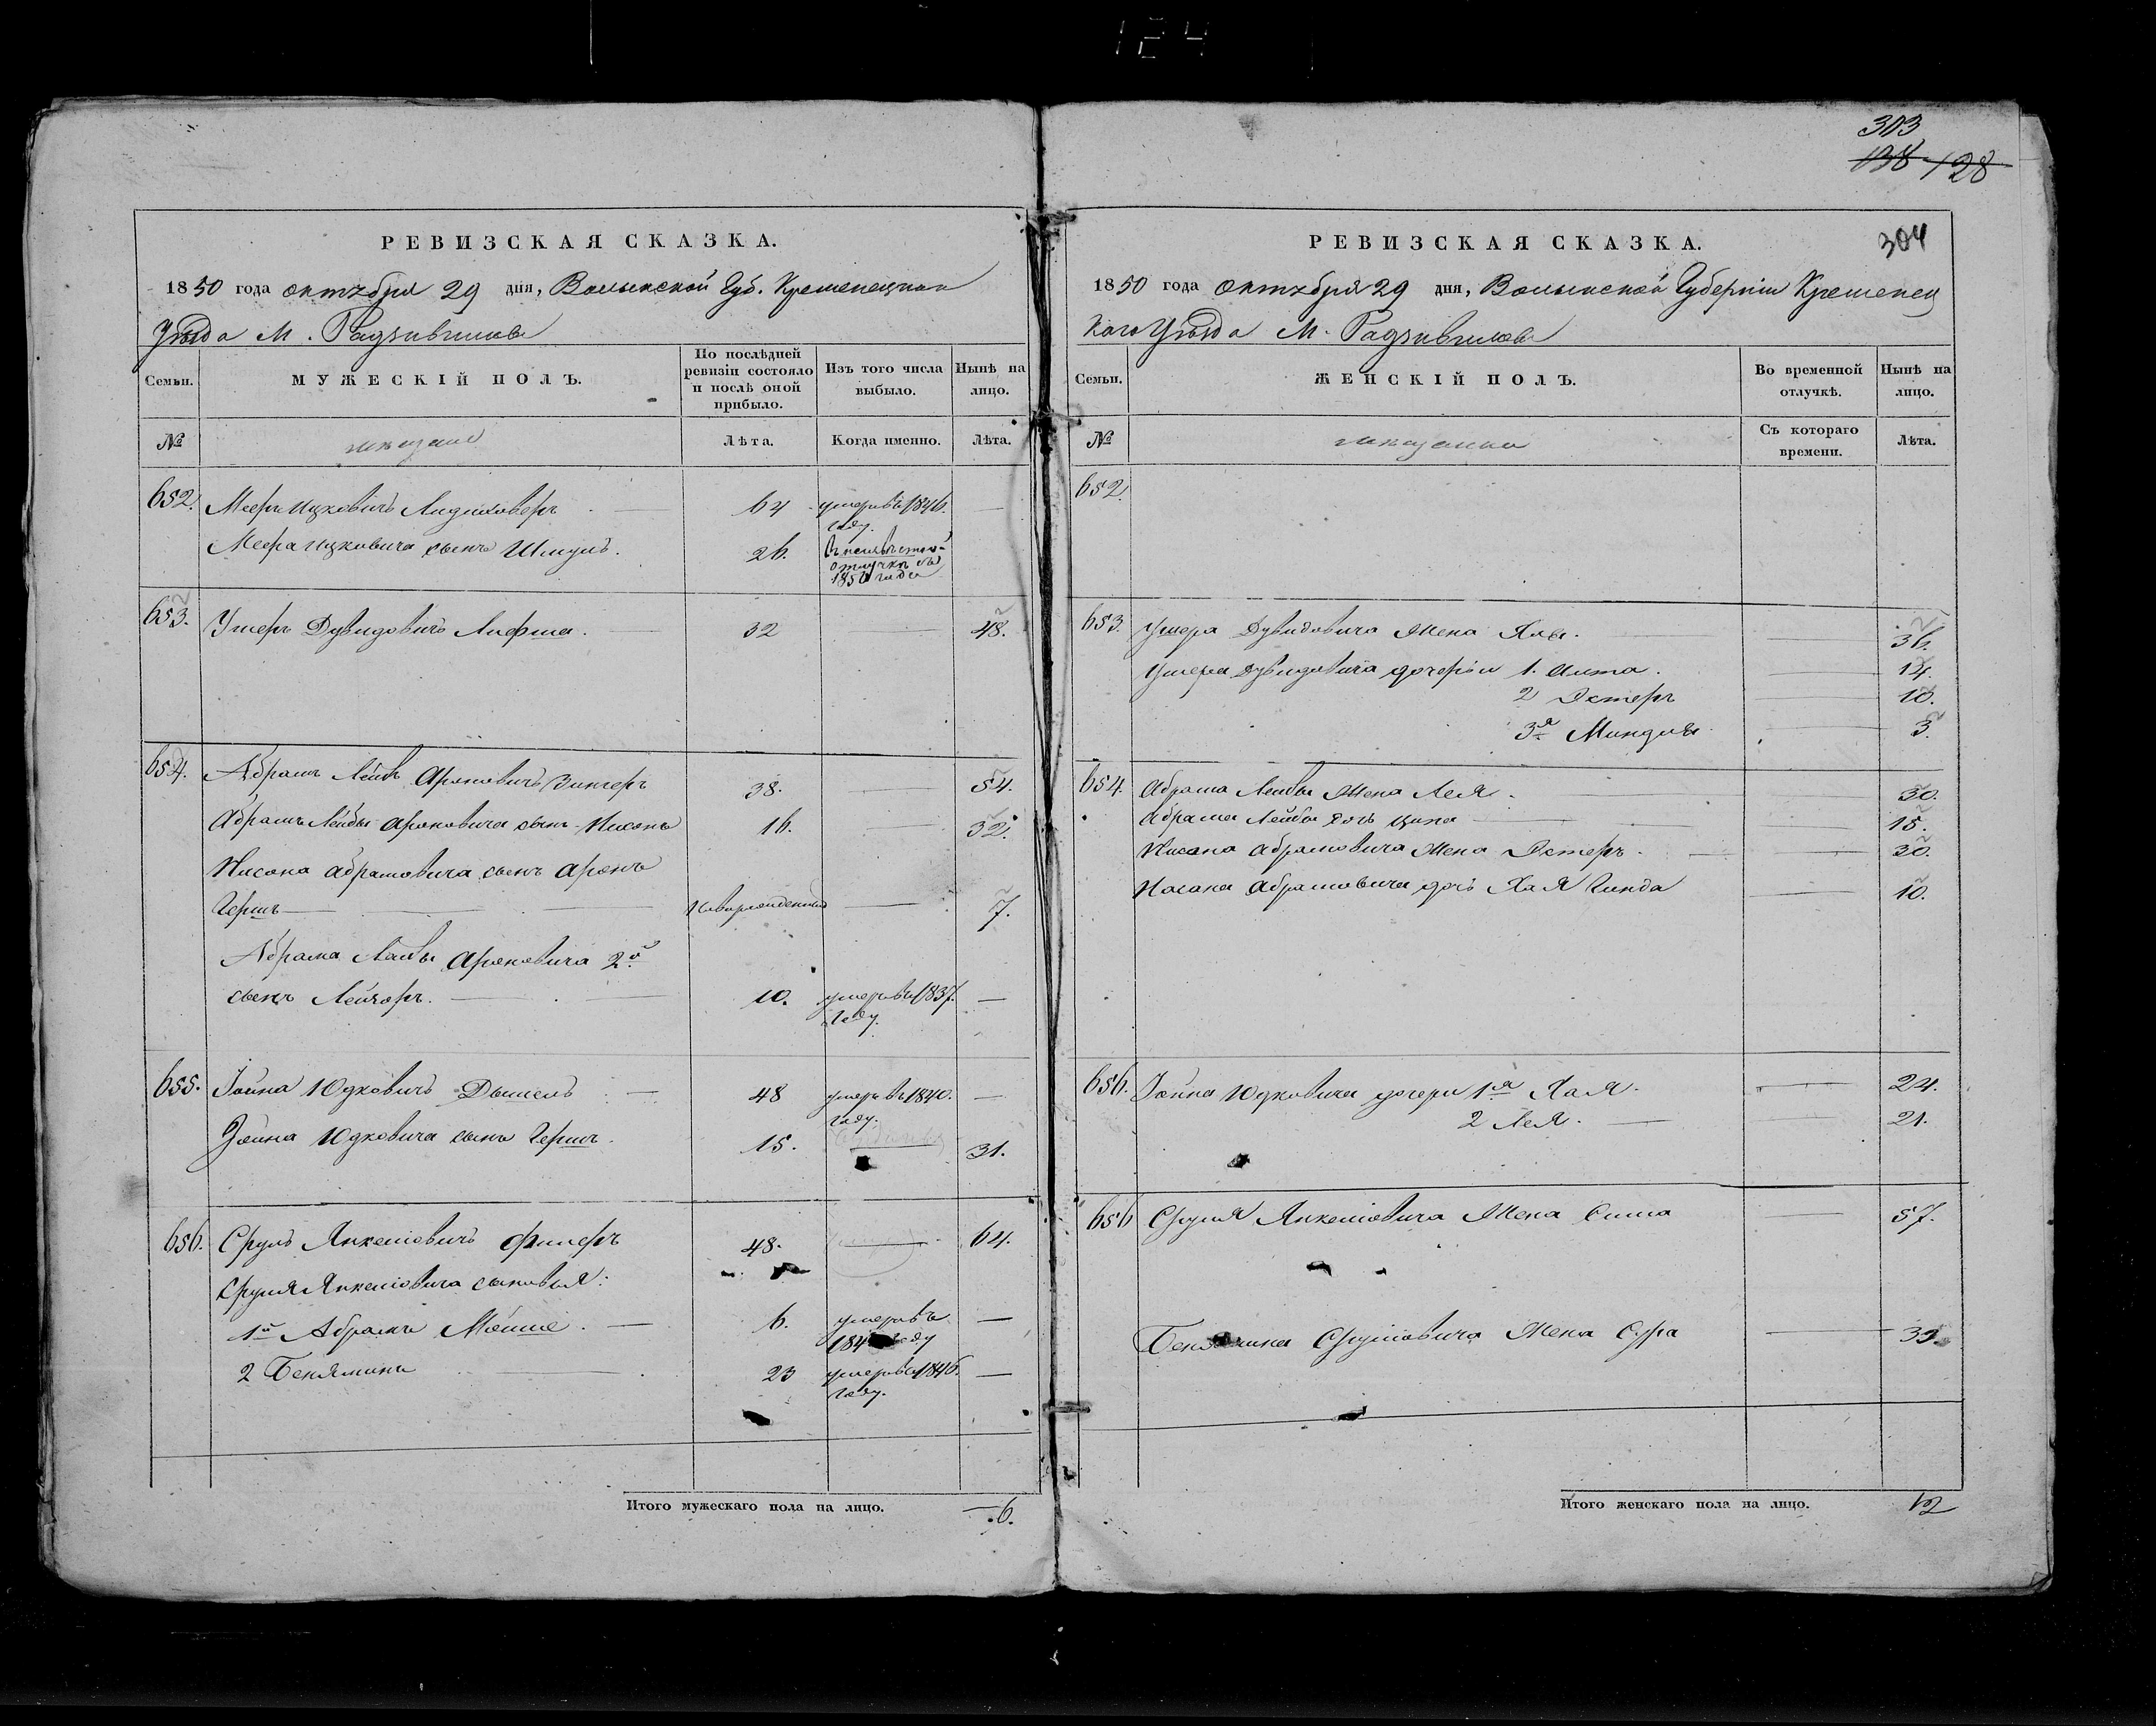 124
303
138 128
РЕВИЗСКАЯ СКАЗКА.
1850 года октября 29 дня, Волынской Губ. Кременецкаго
Уѣзда М. Радзивилова
Семьи. МУЖЕСКІЙ ПОЛЪ. По послѣдней ревизіи состояло и послѣ оной прибыло. Изъ того числа выбыло. Нынѣ на лицо.
№ мещане Лѣта. Когда именно. Лѣта.
652. Мееръ Ицковичъ 64 умеръ въ 1846. году. —
Меера Ицковича сынъ Шмуль. 26. отлучкѣ съ 1850 года
653. Ушеръ Дувидовичъ Лифша. 32 — 48.
654. Абрамъ Лейба Ароновичъ 38. — 54.
Абрамъ Лейбы Ароновича сынъ Нисонъ 16. — 32.
Нисона Абрамовича сынъ Аронъ
Гершъ — новорожденный — 7.
Абрама Лейбы Ароновича 2й
сынъ Лейзоръ. — 10. умеръ въ 1837. году. —
655. Іойна Юдковичъ 48 умеръ въ 1840. году. —
Іойна Юдковича сынъ Гершъ. 15. — 31.
656. Сруль Янкелiовичъ Фишеръ 48. — 64.
Сруля Янкелiовича сыновья:
1й Абрамъ Мойше. — 6. умеръ въ 184 году —
2 Беньяминъ 23 умеръ въ 1846. году. —
Итого мужескаго пола на лицо. 6.
РЕВИЗСКАЯ СКАЗКА.
304
1850 года октября 29 дня, Волынской Губерніи Кременец
каго Уѣзда М. Радзивилова
Семьи. ЖЕНСКІЙ ПОЛЪ. Во временной отлучкѣ. Нынѣ на лицо.
№ мещанки Съ котораго времени. Лѣта.
652.
653. Ушера Дувидовича жена Хая. — 36.
Ушера Дувидовича дочеріи 1. — 14.
2 Эстеръ — 10.
3я Миндля — 3.
654. Абрама Лейбы жена Лея. — 50.
Абрама Лейбы дочь Ципа — 15.
Нисона Абрамовича жена Эстеръ. — 30.
Нисона Абрамовича дочь Хая Гинда — 10.
656. Іойна Юдковича дочери 1я Хая. — 24.
2 Лея. — 21.
656 Сруля Янкелiовича жена Сима — 57.
Беньямина Срулiовича жена Сура — 33
Итого женскаго пола на лицо. 12